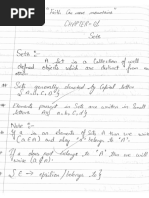 "Faith can move mountains"
CHAPTER-01
Sets
Sets :-
A Set is a Collection of well
defined objects which are distinct from
Sets generally denoted by Capital letter
Elements present in Sets are written in Small
letters
Note :-
If x is an element of Sets A then we
write
If x does not belongs to "A" then we will
∈ → epsilon / belongs to